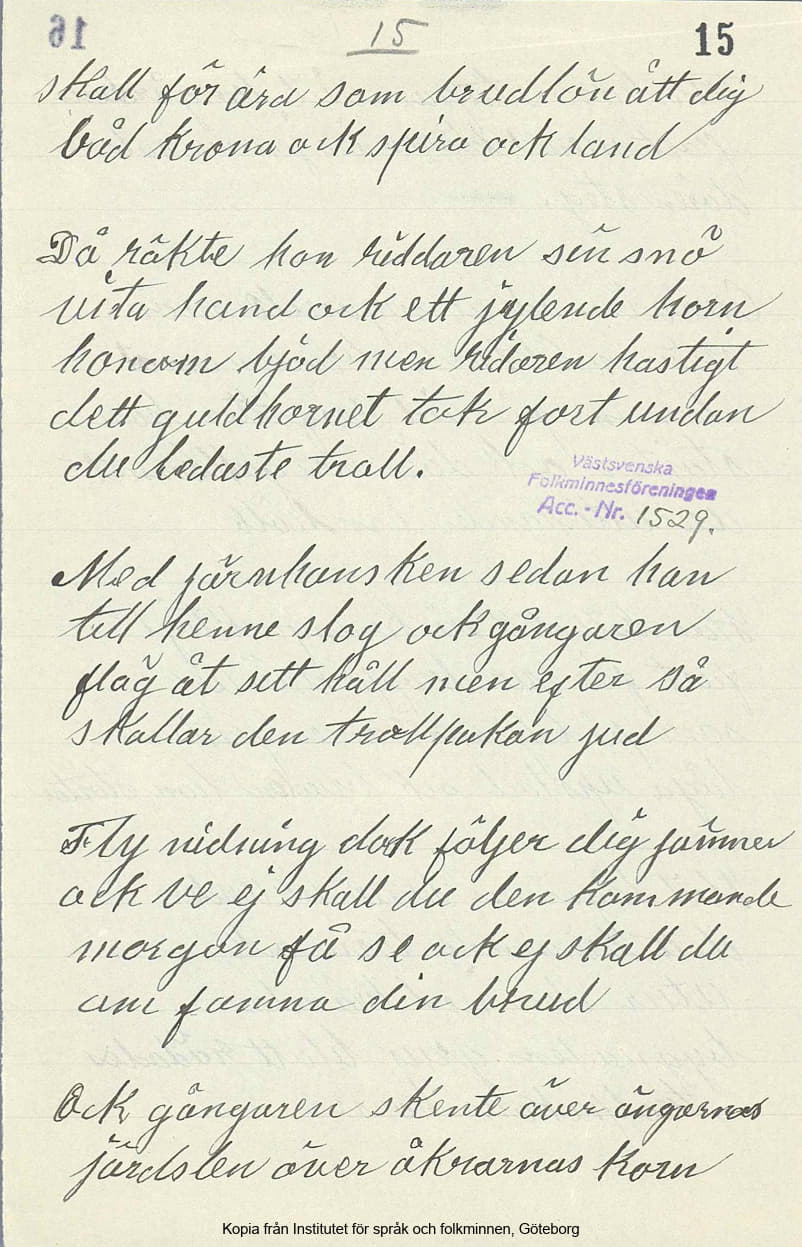 15
15
skall föröra som brudlön ått dig
båd krona ock spira ock land
Då räkte hon riddaren sin snö
vita hand ock ett jylende horn
honom bjöd men ridaren hastigt
dett guldhornet tok fort undan
du ledaste troll.
Västsvenska
Folkminnesföreningen
Acc. - Nr. 1529.
Med järnhansken sedan han
till henne slog ock gångaren
flög åt sitt håll men efter så
skallar den trollpakan jud
Fly nidning dock följer dig jämmer
ock ve ej skall du den kommande
morgon få se ock ej skall du
om famna din brud
Ock gångaren skente över ängarnas
över åkrarnas korn
Kopia från Institutet för språk och folkminnen, Göteborg